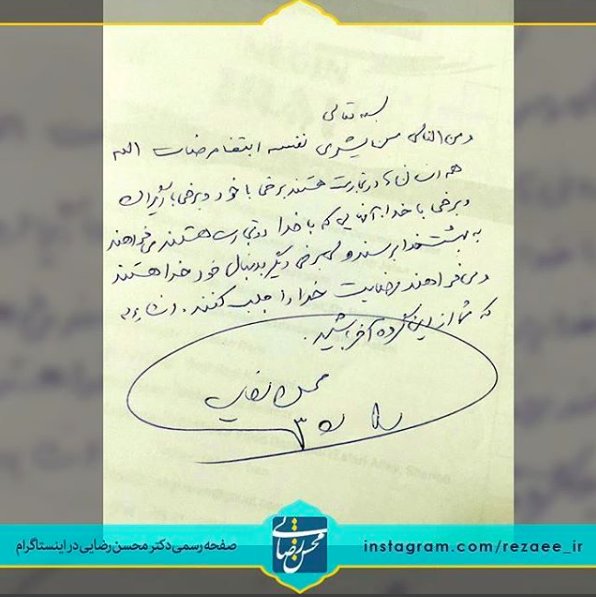 بسمه تعالی
و من الناس من یشری نفسه ابتغاء مرضات الله
همه انسان‌ها در تجارت هستند برخی با خود و برخی با دیگران
و برخی با خدا، آنهایی که با خدا در تجارت هستند می‌خواهند
به بهشت خدا برسند ولی برخی دیگر بدنبال خود خدا هستند
و می‌خواهند رضایت خدا را جلب کنند. انشاءالله
که شما از این گروه آخر باشید.
محسن رضایی
صفحه رسمی دکتر محسن رضایی در اینستاگرام
محسن رضایی
instagram.com/rezaee_ir